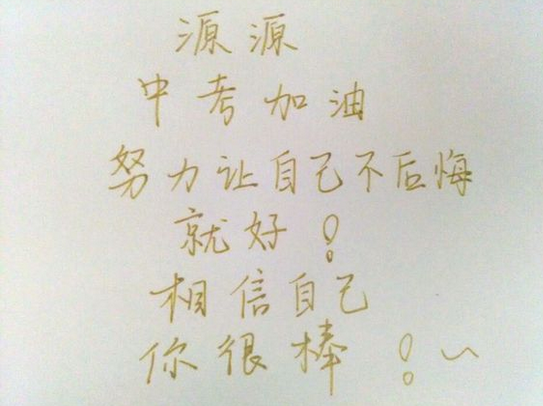 源源
中考加油
努力让自己不后悔
就好！
相信自己
你很棒！~